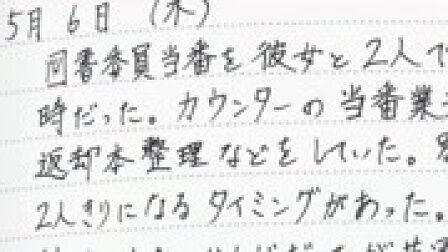 5月6日 (木)
図書委員当番を彼女と2人で
時だった。カウンターの当番業
返却本整理などをしていた。
2人きりになるタイミングがあった。